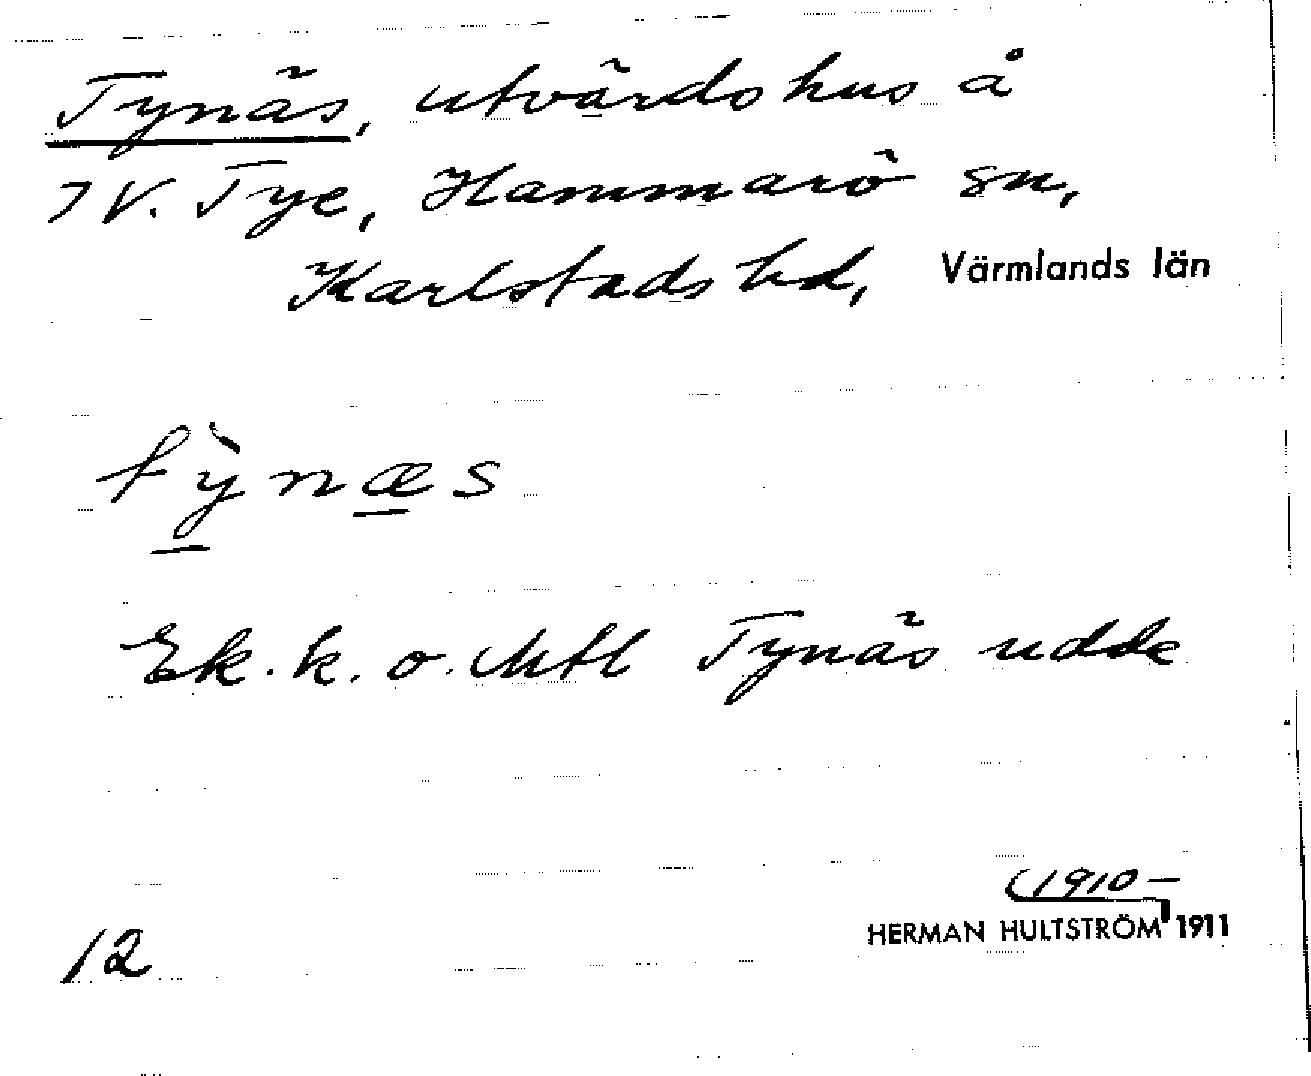 Tynäs, utvärdshus å
7 V. Tye, Hammarö sn,
Karlstads hd, Värmlands län
tỳnæs
Ek. k. o. Mtl Tynäs udde
(1910–
12 HERMAN HULTSTRÖM 1911